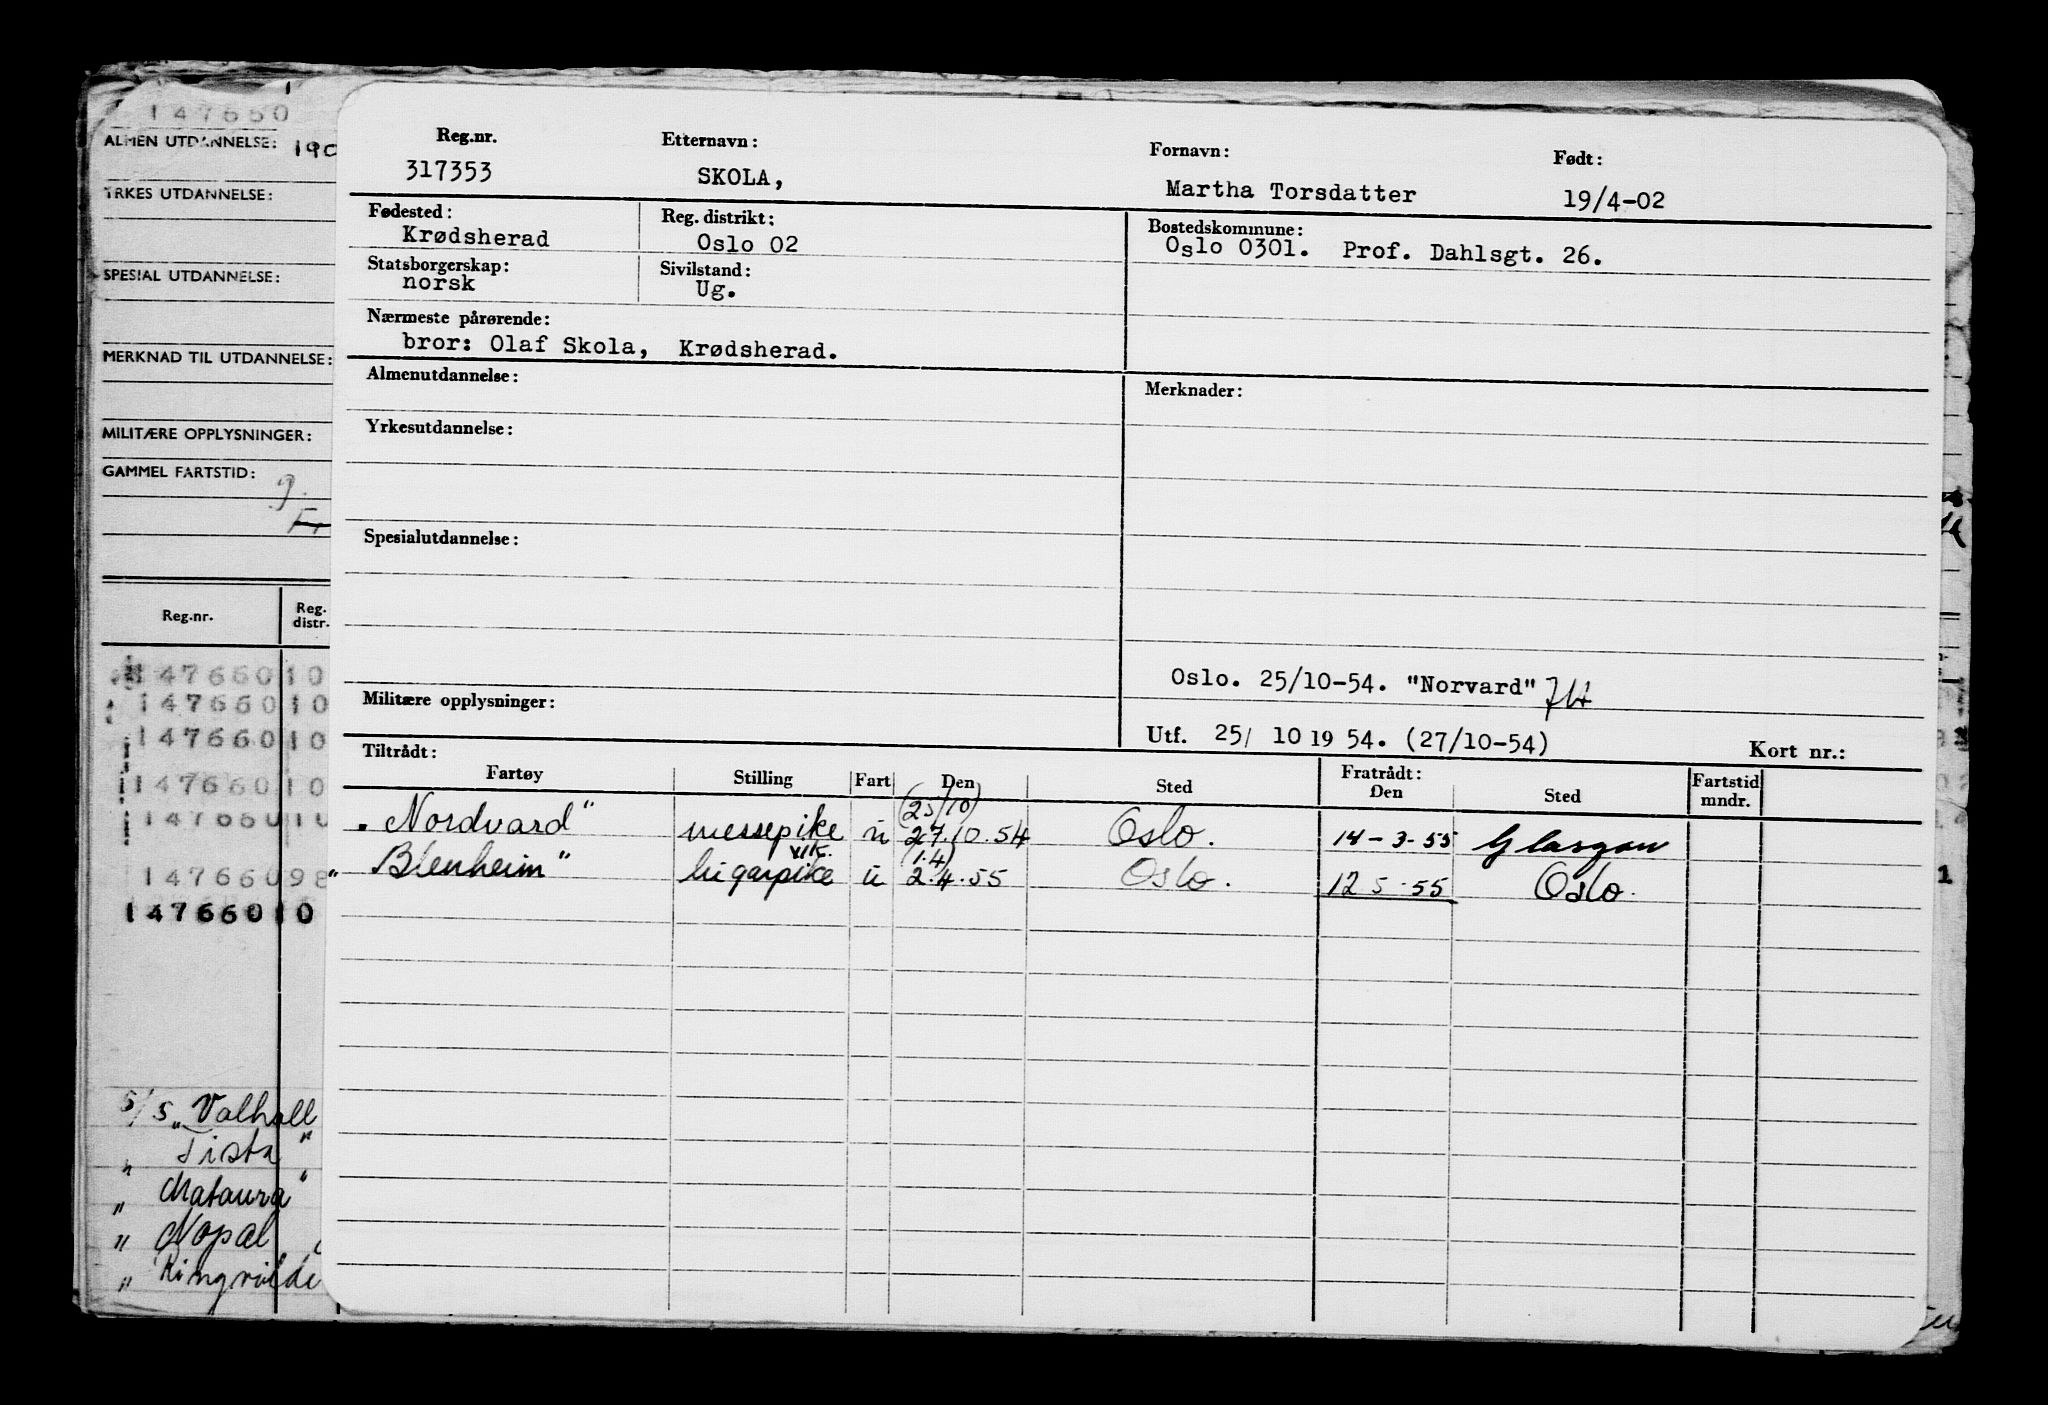 147660
ALMEN UTDANNELSE: 190
YRKES UTDANNELSE:
SPESIAL UTDANNELSE:
MERKNAD TIL UTDANNELSE:
MILITÆRE OPPLYSNINGER:
GAMMEL FARTSTID:
Reg.nr. Reg. distr.
147660 10
147660 10
147660 10
147660 10
147660 10
147660 98
147660 10
s/s „Valhall
„ Tista"
„ Mataura"
„ Nopal
„ Ringulv
Reg.nr. Etternavn: Fornavn: Født:
317353 SKOLA, Martha Torsdatter 19/4-02
Fødested: Reg. distrikt: Bostedskommune:
Krødsherad Oslo 02 Oslo 0301. Prof. Dahlsgt. 26.
Statsborgerskap: Sivilstand:
norsk Ug.
Nærmeste pårørende:
bror: Olaf Skola, Krødsherad.
Almenutdannelse: Merknader:
Yrkesutdannelse:
Spesialutdannelse:
Oslo. 25/10-54. "Norvard"
Militære opplysninger:
Utf. 25/ 10 19 54. (27/10-54) Kort nr.:
Tiltrådt: Fratrådt:
Fartøy Stilling Fart Den Sted Den Sted Fartstid mndr.
(25/10)
„Nordvard" messepike u 27.10.54 Oslo. 14-3-55 Glasgow
vik. (1.4)
„Blenheim" lugarpike u 2.4.55 Oslo. 12 5.55 Oslo.